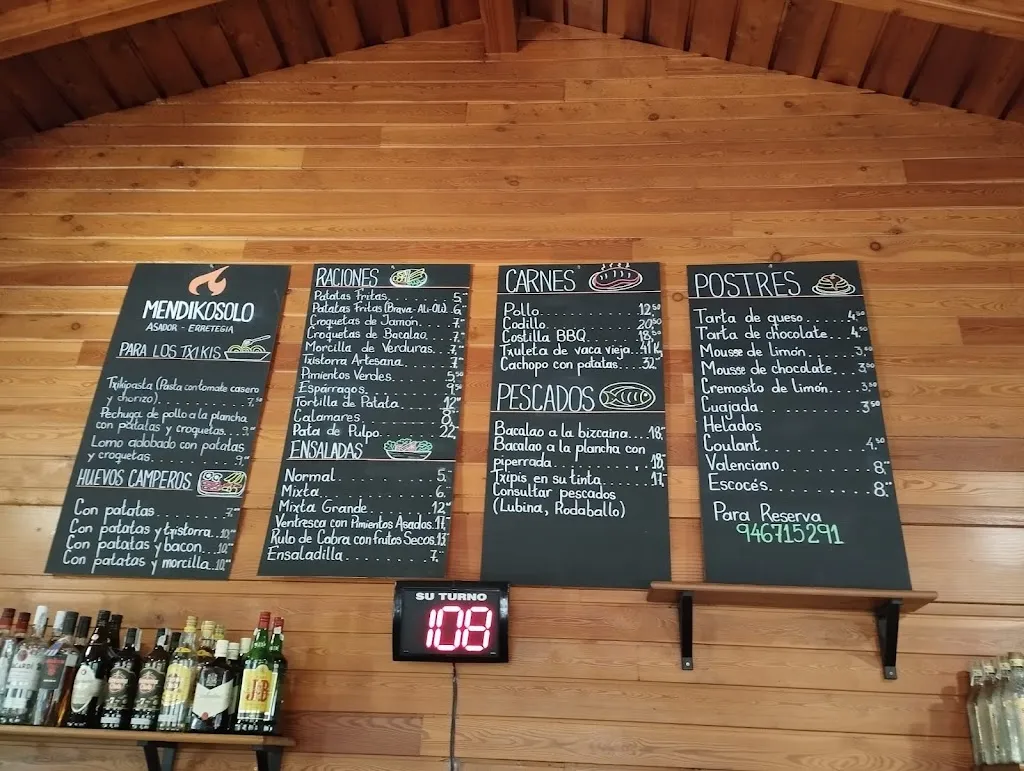 MENDIKOSOLO
ASADOR - ERRETEGIA
PARA LOS TXIKIS
Txikipasta (Pasta con tomate casero
y chorizo)........7,50
Pechuga de pollo a la plancha
con patatas y croquetas..9,"
Lomo adobado con patatas
y croquetas........9,"
HUEVOS CAMPEROS
Con patatas........7,"
Con patatas y txistorra..10,"
Con patatas y bacon..10,"
Con patatas y morcilla..10,"
RACIONES
Patatas Fritas........5,"
Patatas Fritas (Brava-Ali-Oli) 6,"
Croquetas de Jamón....7,"
Croquetas de Bacalao..7,"
Morcilla de Verduras..7,"
Txistorra Artesana....7,"
Pimientos Verdes......5,50
Espárragos........9,50
Tortilla de Patata....12,"
Calamares........8,"
Pata de Pulpo......22,"
ENSALADAS
Normal........5,"
Mixta........6,"
Mixta Grande......12,"
Ventresca con Pimientos Asados.17,"
Rulo de Cabra con frutos Secos.13,"
Ensaladilla........7,"
CARNES
Pollo........12,50
Codillo........20,50
Costilla BBQ......18,50
Txuleta de vaca vieja..41 K
Cachopo con patatas...32,"
PESCADOS
Bacalao a la bizcaina...18,"
Bacalao a la plancha con
piperrada........18,"
Txipis en su tinta....17,"
Consultar pescados
(Lubina, Rodaballo)
POSTRES
Tarta de queso......4,50
Tarta de chocolate...4,50
Mousse de limón.....3,00
Mousse de chocolate...3,00
Cremosito de limón...3,50
Cuajada........3,50
Helados
Coulant........4,50
Valenciano........8,"
Escocés........8,"
Para Reserva
946715291
SU TURNO
108
BACARDI
J&B